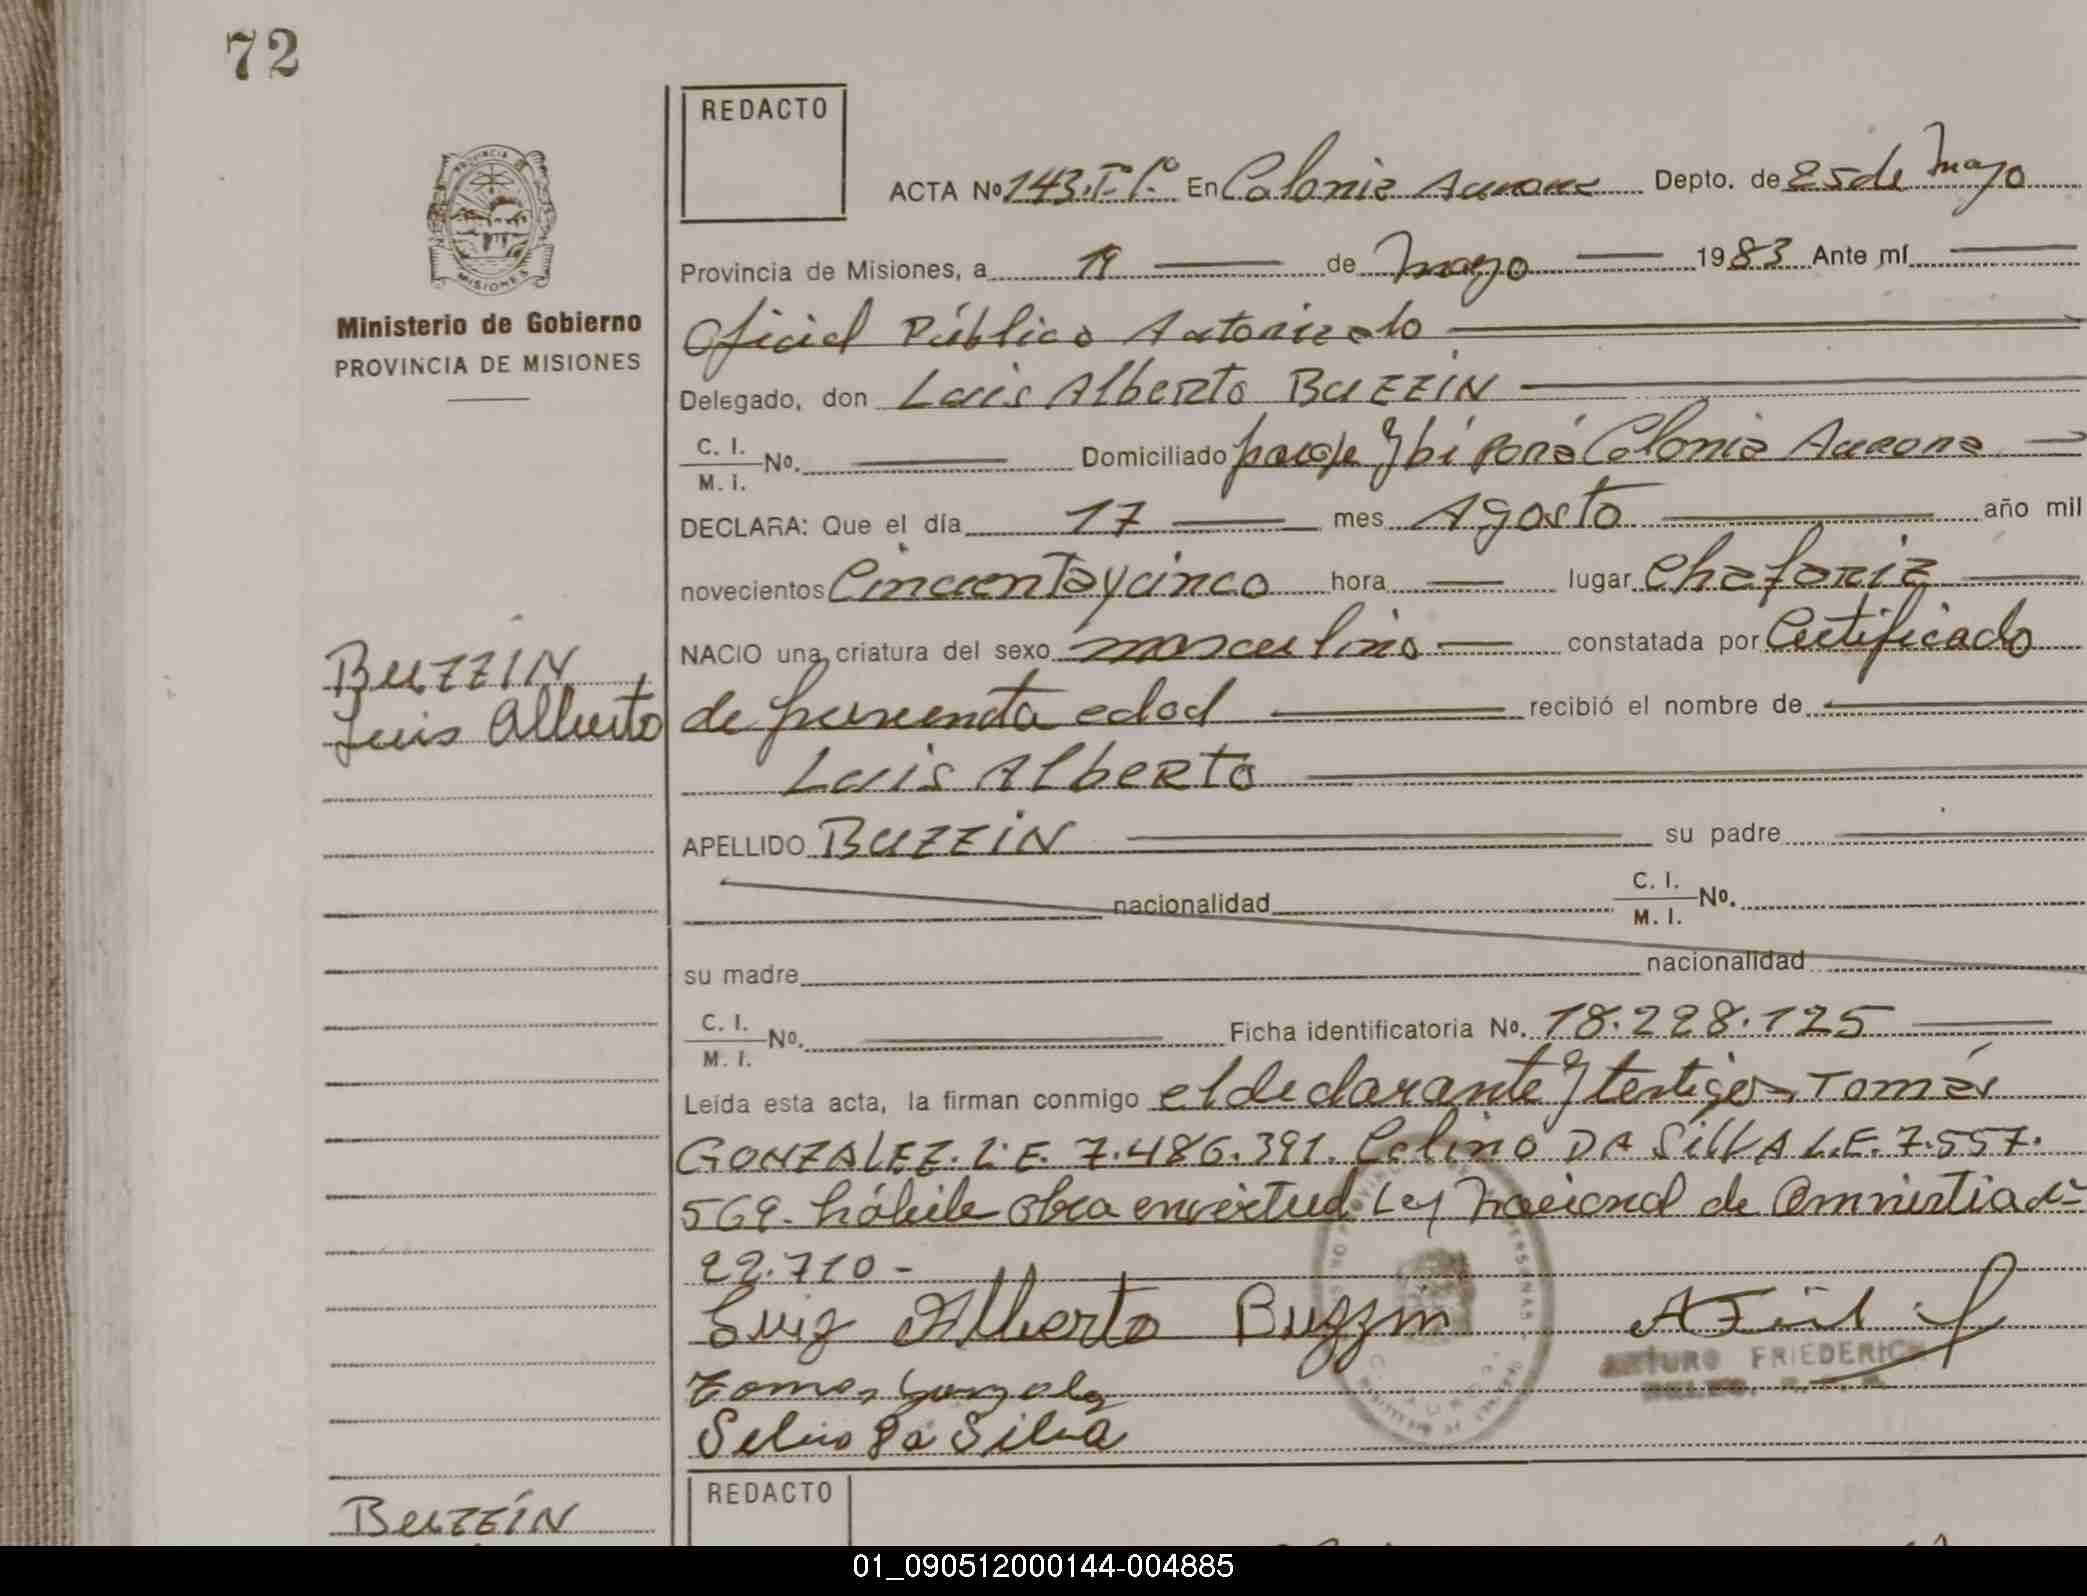 72
REDACTO
PROVINCIA DE
MISIONES
Ministerio de Gobierno
PROVINCIA DE MISIONES
ACTA Nº 143.Tº1.º En Colonia Aurora Depto. de 25 de Mayo
Provincia de Misiones, a 19 de Mayo 1983 Ante mí
Oficial Público Autorizado
Delegado, don Luis Alberto BUZZIN
C. I. / M. I. Nº. Domiciliado paraje Ybí Porá Colonia Aurora
DECLARA: Que el día 17 mes Agosto año mil
novecientos Cincuenta y cinco hora lugar Chafariz
NACIO una criatura del sexo masculino constatada por Certificado
BUZZIN
Luis Alberto
de presunta edad recibió el nombre de
Luis Alberto
APELLIDO BUZZIN su padre
nacionalidad C. I. / M. I. Nº.
su madre nacionalidad
C. I. / M. I. Nº. Ficha identificatoria Nº. 18.228.125
Leída esta acta, la firman conmigo el declarante y testigos Tomás
GONZALEZ. L.E. 7.486.391. Celino DA SILVA L.E. 7.557.
569. hábile obra en virtud Ley Nacional de Amnistia
22.710 -
Luiz Alberto Buzzin
ARTURO FRIEDERICH
Tomas Gonzalez
Selino Da Silva
REDACTO
BUZZÍN
01_090512000144-004885